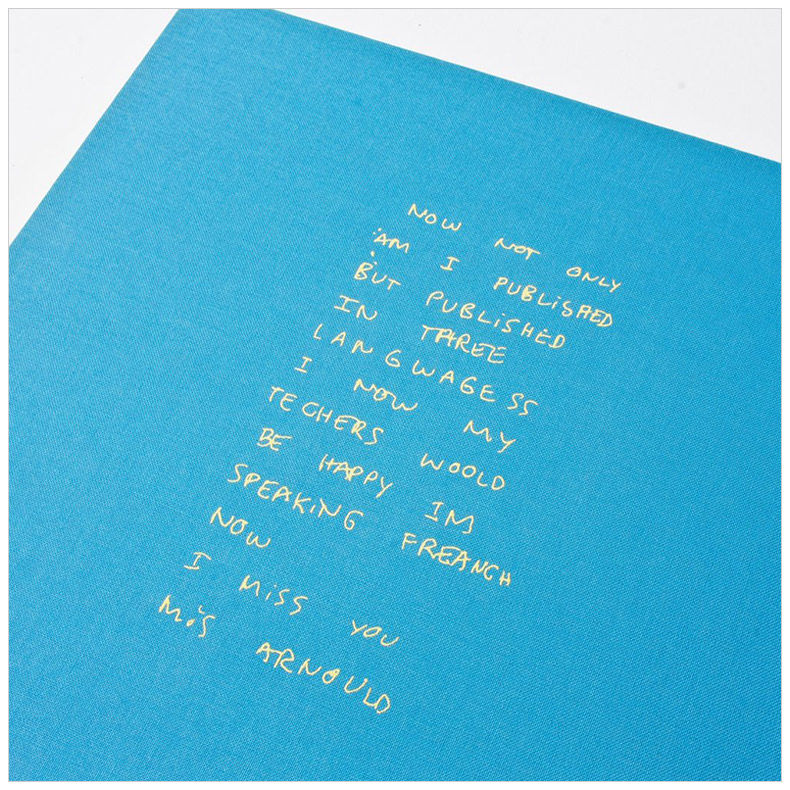 NOW NOT ONLY
AM I PUBLiSHED
BUT PUBLiSHED
IN THREE
LANGWAGESS
I NOW MY
TECHERS WOOLD
BE HAPPY IM
SPEAKiNG FREANCH
NOW
I MiSS YOU
MiS ARNOULD